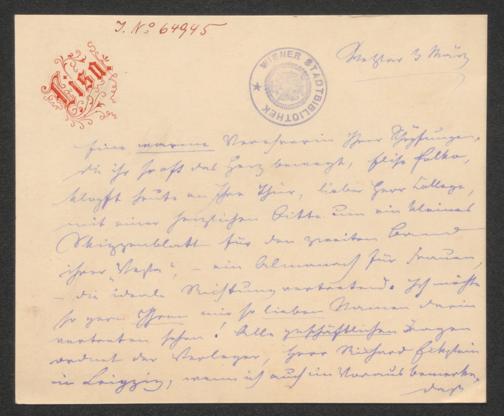 J. No 64945
Elisa.
WIENER STADTBIBLIOTHEK
Wetzlar 3 März
Eine warme Verehrerin Ihrer Schöpfungen,
die ihr so oft das Herz bewegt, Elise Polko,
klopft heute an Ihre Thür, lieber Herr College,
mit einer herzlichen Bitte um ein kleines
Skizzenblatt für den zweiten Band
ihrer "Vesta", – ein Almanach für Frauen,
– die ideale Richtung vertretend. Ich möchte
so gern Ihren mir so lieben Namen darin
vertreten sehen! Alle geschäftlichen Fragen
ordnet der Verleger, Herr Richard Eckstein
in Leipzig, wenn ich auch im Voraus bemerke,
daß